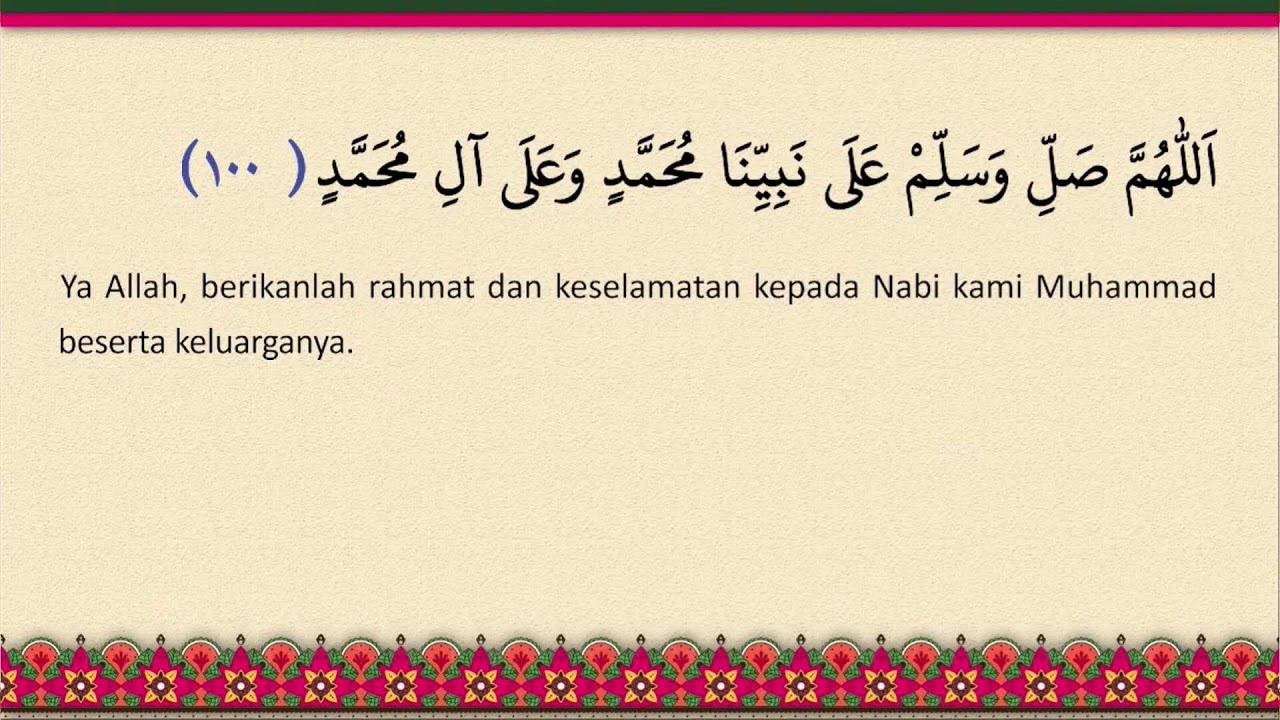 اَللّٰهُمَّ صَلِّ وَسَلِّمْ عَلَى نَبِيِّنَا مُحَمَّدٍ وَعَلَى آلِ مُحَمَّدٍ ( ١٠٠ )
Ya Allah, berikanlah rahmat dan keselamatan kepada Nabi kami Muhammad
beserta keluarganya.